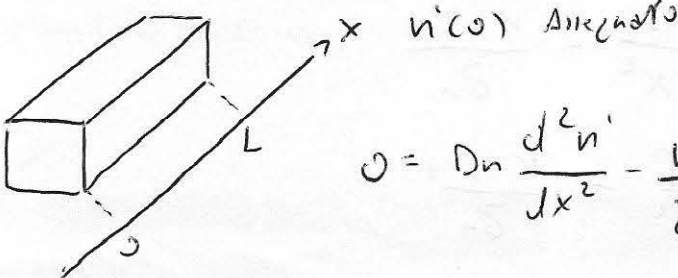 x n'(0) Assegnato
L
0 = Dn d²n'/dx² -
0